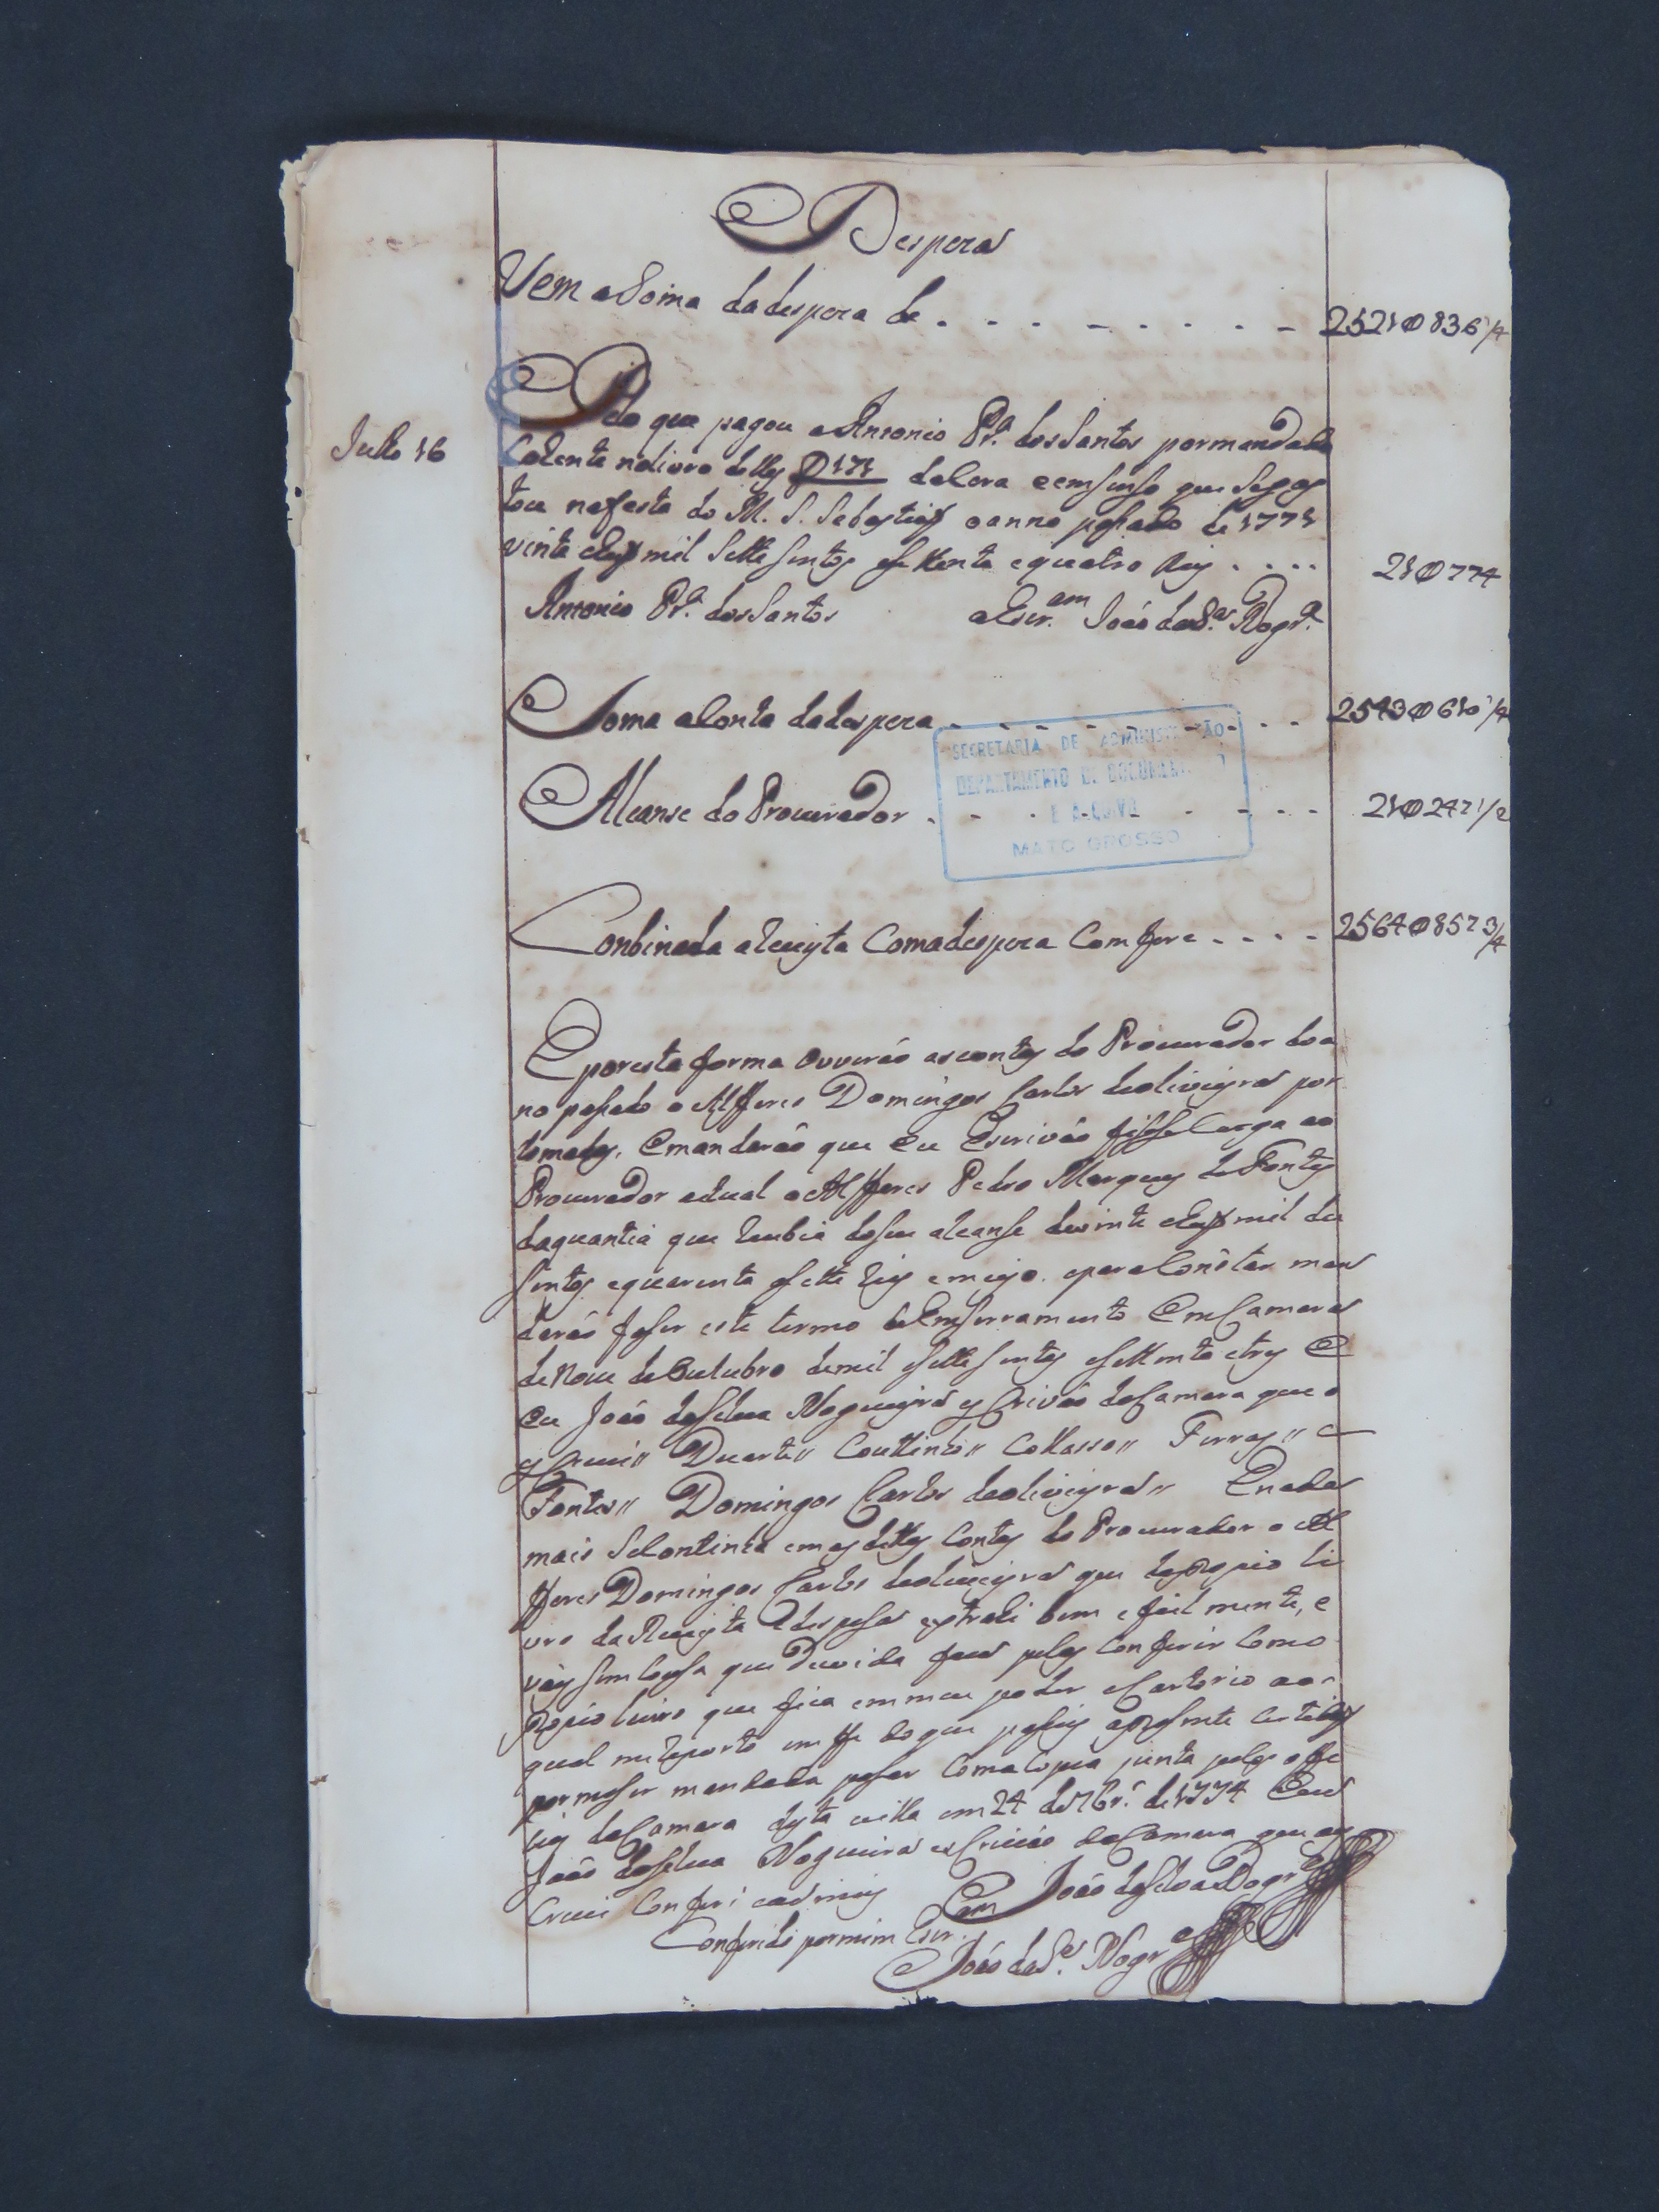 Despeza
Vem a Soma da despeza de . . . . . . . . 2521ↀ836 1/4
Julho 16
Pelo que pagou a Antonio Pr.ª dos Santos por mandado
Corrente no livro delles 171 de Cera e emsenso que se gas
tou na festa do M. S. Sebastião o anno passado de 1771
vinte e hum mil sette sentos e settenta e quatro Reis . . . . 21ↀ774
Antonio Pr.ª dos Santos o Escr.am João da S.ª Nogr.ª
Soma a Conta da despeza . . . . . . . . 2543ↀ610 1/4
SECRETARIA DE ADMINISTRAÇÃO
DEPARTAMENTO DE DOCUMEN
E ARQUIVO
MATO GROSSO
Alcanse do Procurador . . . . . . . . 21ↀ247 1/2
Conbinada a Receyta Com a despeza Comfere . . . . 2564ↀ857 3/4
E por esta forma ouverão as contas do Procurador do a
no passado o Alfferes Domingos Carlos de oliveyra por
tomadas, E mandarão que Eu Escrivão fisesse Carga ao
Procurador actual o Alfferes Pedro Marques de Fontes
da quantia que Recebia do seu alcanse de vinte e hum mil du
sentos e quarenta e sette Reis e meyo. e para Constar man
darão faser este termo de Emserramento Em Camera
de nove de outubro de mil e sette sentos e settenta e tres E
Eu João da Silva Nogueyra escrivão da Camara que o
escrevi // Duarte // Couttinho // Collasso // Ferras // e
Fontes // Domingos Carlos de oliveyra // E nada
mais se Continha em as dittas Contas do Procurador o Al
fferes Domingos Carlos de oliveyra que do Proprio li
vro da Receyta e despesa extrahi bem e fielmente, e
vay sem Cousa que duvida fassa pelas Conferir Com o
Proprio livro que fica em meu poder e Cartorio ao
qual me Reporto em ffe do que passey a prezente Certidão
por me ser mandada passar Com a Copia junta pelos offe
ciaes da Camara desta villa em 24 de 7br.º de 1774 E eu
João da Silva Nogueira esCrivão da Camara que o es
Crevi Conferi e asiney
João da Silva Nogr.ª
Conferido por mim Escr.am
João da S.ª Nogr.ª